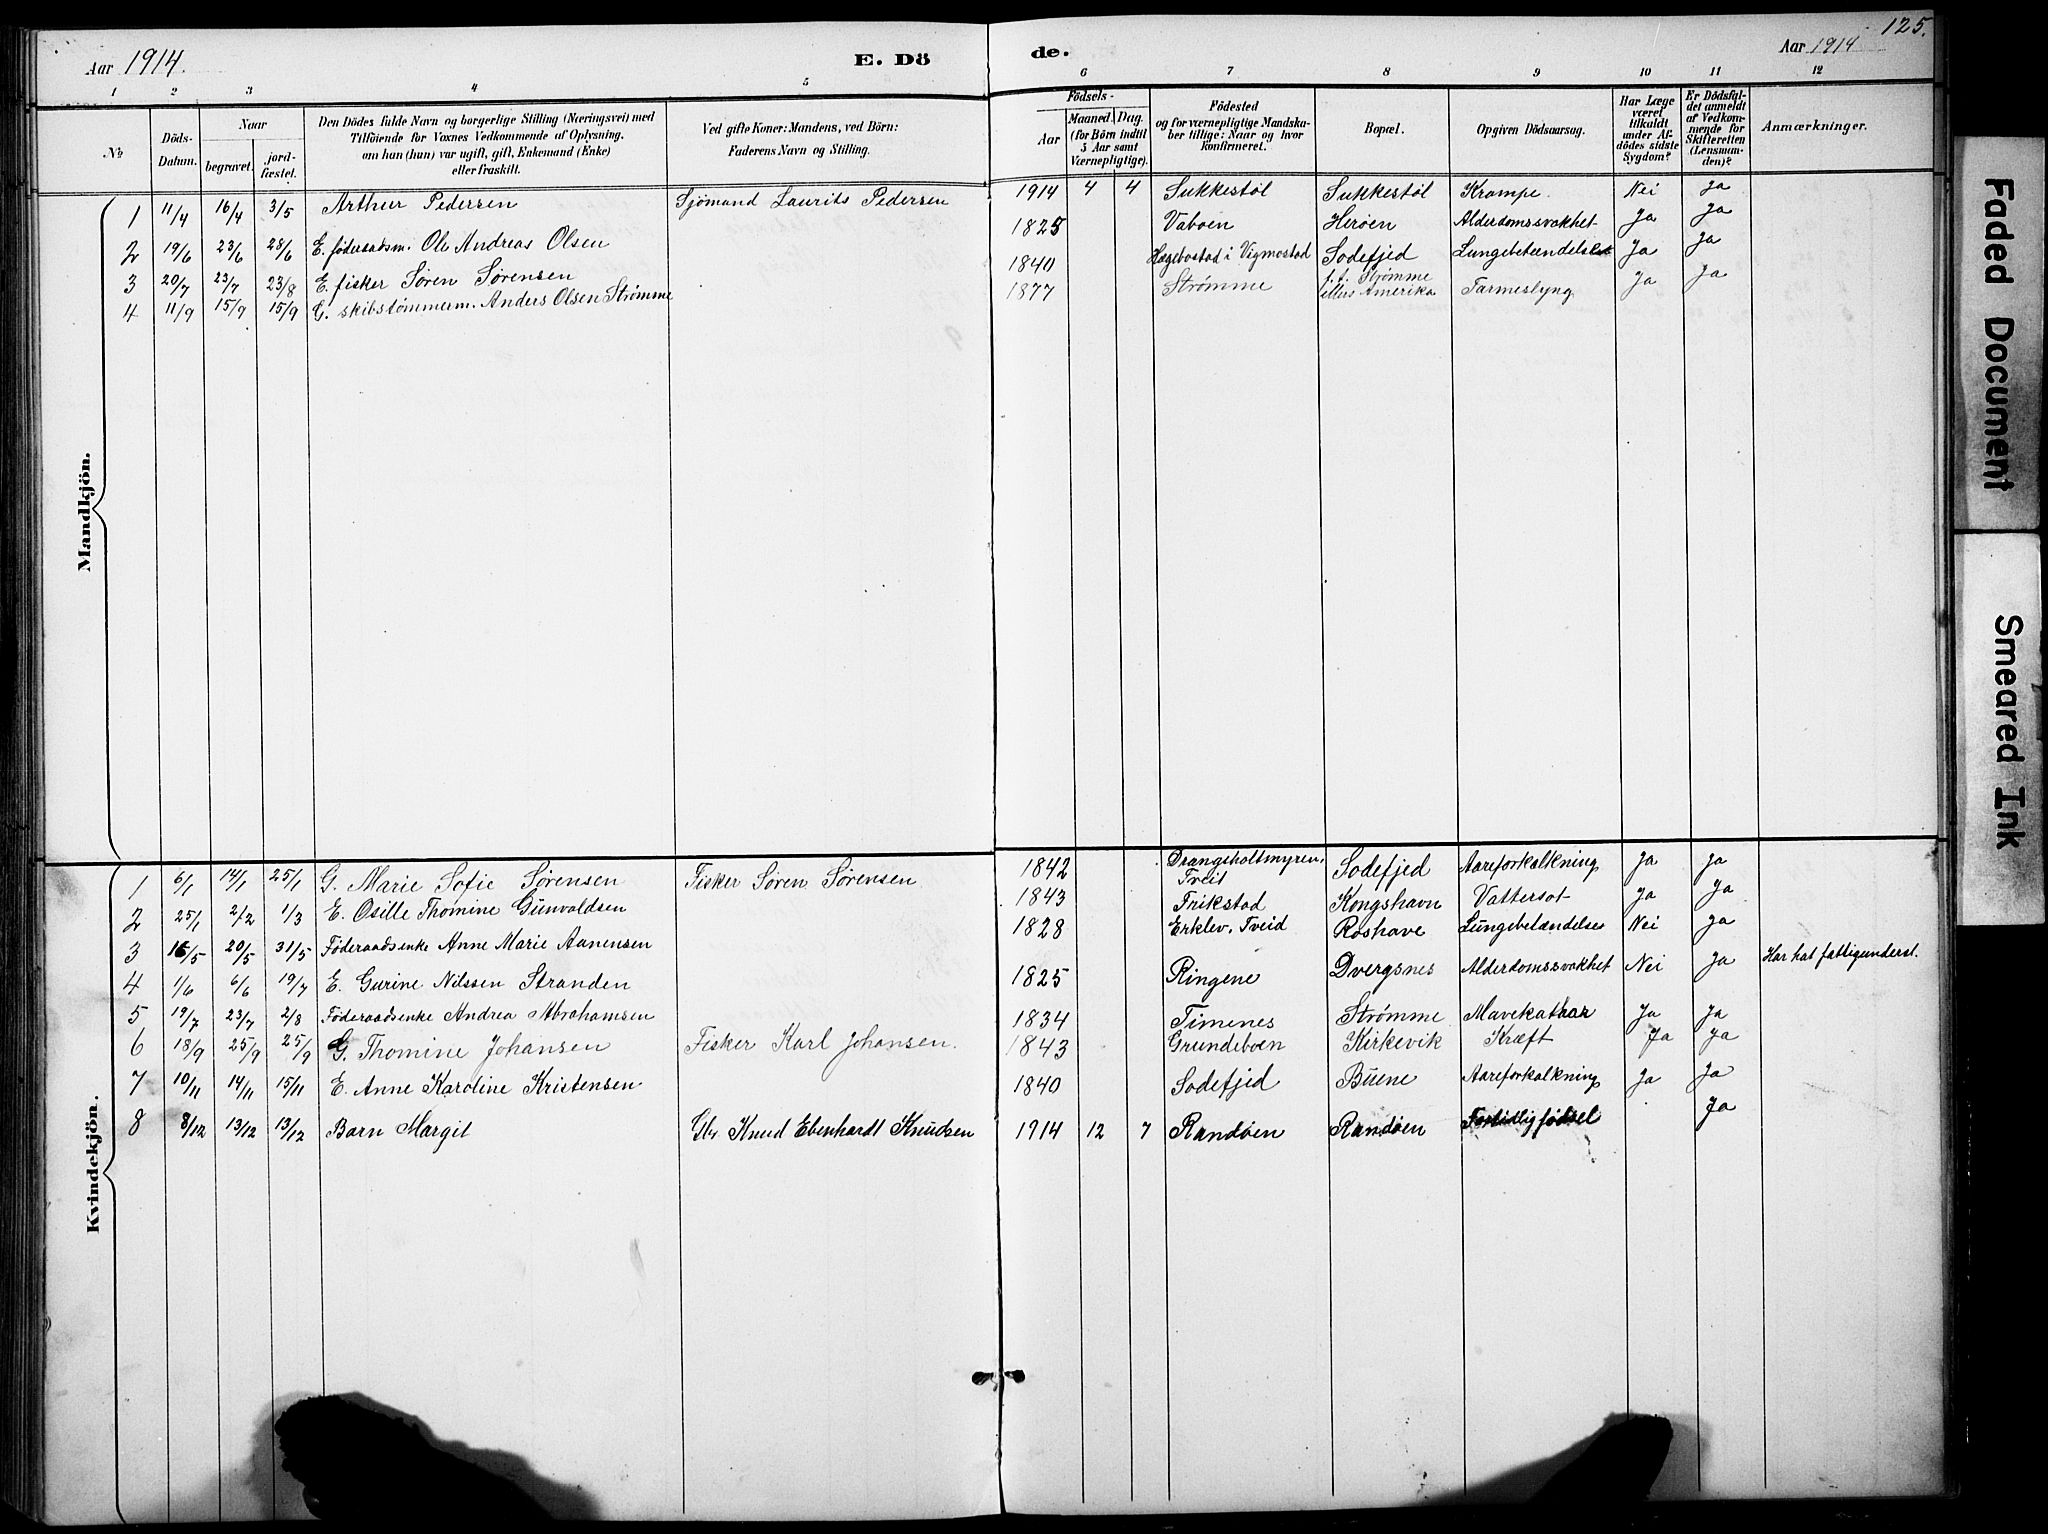 Aar 1914. E. Dö de. Aar 1914 125.
1 2 3 4 5 6 7 8 9 10 11 12
№ Döds-Datum. Naar begravet. jord-fæstet. Den Dödes fulde Navn og borgerlige Stilling (Næringsvei) med Tilföiende for Voxnes Vedkommende af Oplysning, om han (hun) var ugift, gift, Enkemand (Enke) eller fraskilt. Ved gifte Koner: Mandens, ved Börn: Faderens Navn og Stilling. Födsels- Aar Maaned. Dag. (for Börn indtil 5 Aar samt Værnepligtige). Födested og for værnepligtige Mandska-ber tillige: Naar og hvor konfirmeret. Bopæl. Opgiven Dödsaarsag. Har Læge været tilkaldt under Af-dödes sidste Sygdom? Er Dödsfal-det anmeldt af Vedkom-mende for Skifteretten (Lensman-den)? Anmærkninger.
Mandkjön.
1 11/4 16/4 3/5 Arthur Pedersen Sjömand Laurits Pedersen 1914 4 4 Sukkestøl Sukkestøl Krampe. Nei Ja
2 19/6 23/6 28/6 E. føderaadsm. Ole Andreas Olsen 1825 Vaboen Herøen Alderdomssvakhet Ja Ja
3 20/7 23/7 23/8 E. fisker Søren Sørensen 1840 Hægebostad i Vigmostad Sodefjed Lungebetændelse Ja Ja
4 11/9 15/9 15/9 G. skibstømmerm. Anders Olsen Strømme 1877 Strømme f. t. Strømme ellers Amerika Tarmeslyng Ja Ja
Kvindekjön.
1 6/1 14/1 25/1 G. Marie Sofie Sørensen Fisker Søren Sørensen 1842 Drangsholtmyren, Tveit Sodefjed Aareforkalkning Ja Ja
2 25/1 2/2 1/3 E. Osille Thomine Gunvaldsen 1843 Frikstad Kongshavn Vattersot Ja Ja
3 16/5 20/5 31/5 Føderaadsenke Anne Marie Aanensen 1828 Erklev, Tveid Roshave Lungebetændelse Nei Ja
4 1/6 6/6 19/7 E. Gurine Nilssen Stranden 1825 Ringene Dvergsnes Alderdomssvakhet Nei Ja Har hat fattigunderst.
5 19/7 23/7 2/8 Føderaadsenke Andrea Abrahamsen 1834 Timenes Strømme Mavekathar Ja Ja
6 18/9 25/9 25/9 G. Thomine Johansen Fisker Karl Johansen. 1843 Grundeboen Kirkevik Kræft Ja Ja
7 10/11 14/11 15/11 E. Anne Karoline Kristensen 1840 Sodefjed Buene Aareforkalkning Ja Ja
8 8/12 13/12 13/12 Barn Margit Gbr. Knud Ebenhardt Knudsen 1914 12 7 Randøen Randøen Fortidlig fødsel Ja
Faded Document
Smeared Ink